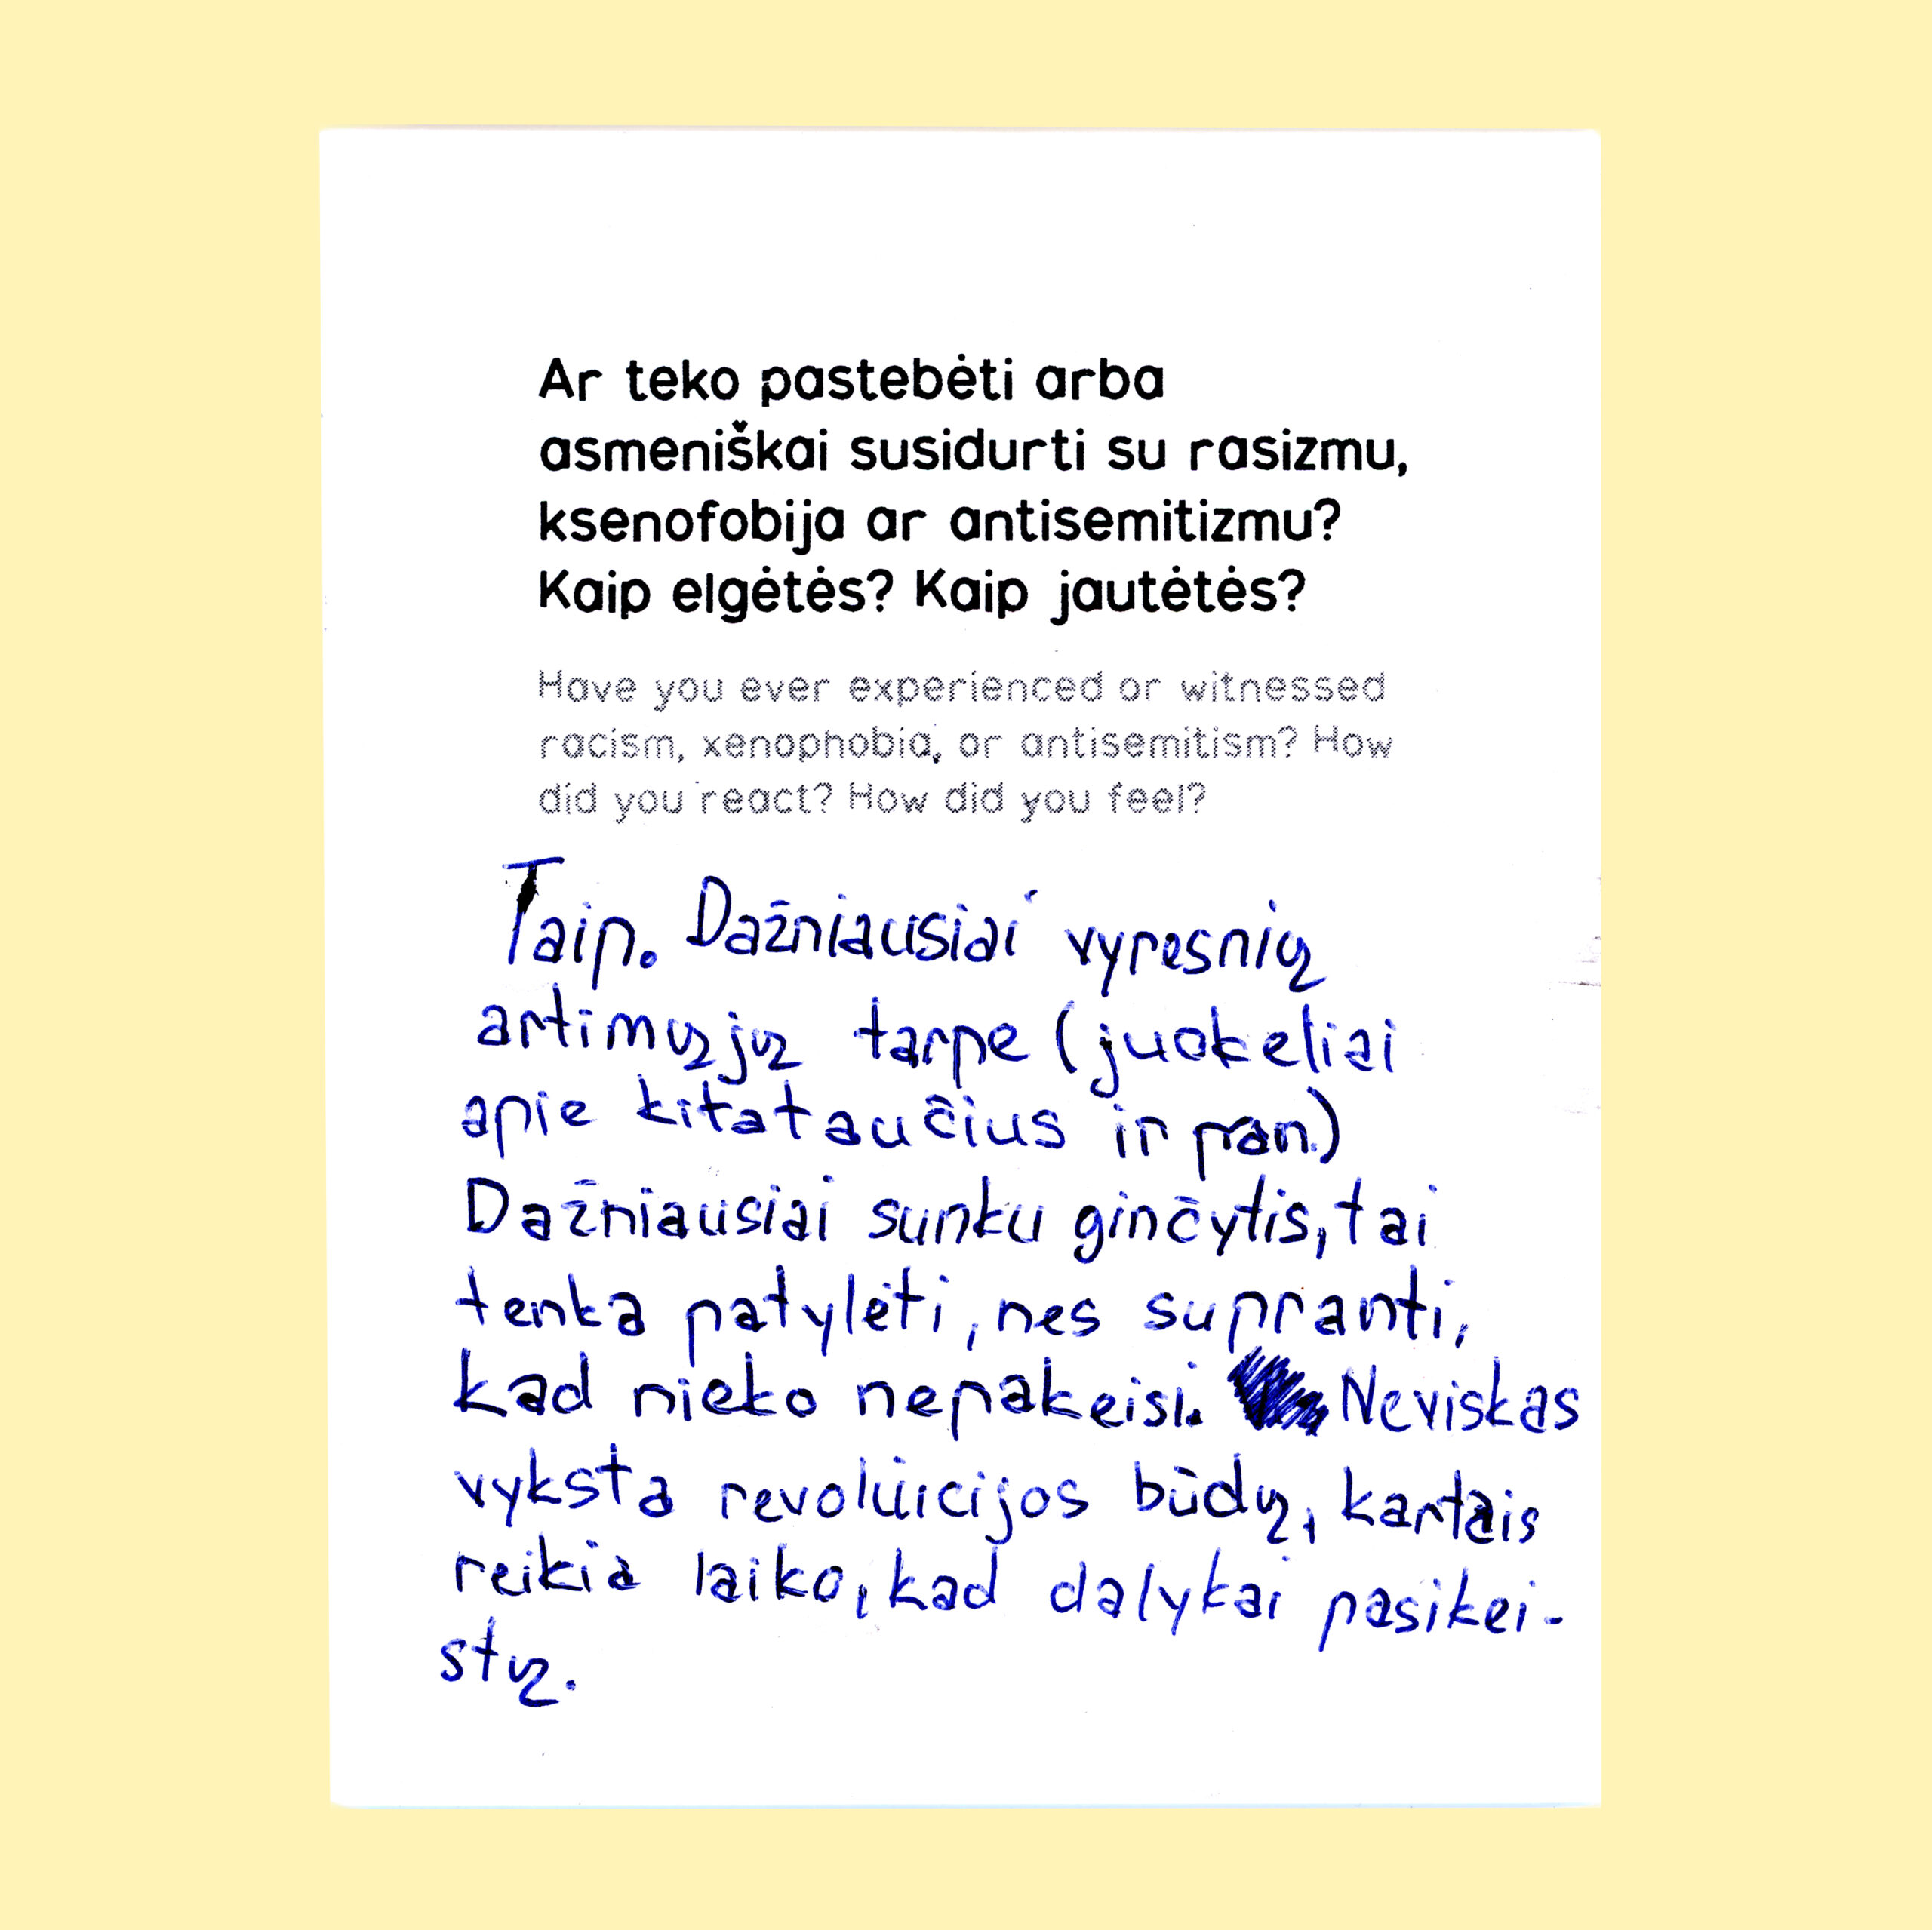 Ar teko pastebėti arba
asmeniškai susidurti su rasizmu,
ksenofobija ar antisemitizmu?
Kaip elgėtės? Kaip jautėtės?
Have you ever experienced or witnessed
racism, xenophobia, or antisemitism? How
did you react? How did you feel?
Taip. Dažniausiai vyresnių
artimųjų tarpe (juokeliai
apie kitataučius ir pan.)
Dažniausiai sunku ginčytis, tai
tenka patylėti, nes supranti,
kad nieko nepakeisi. Neviskas
vyksta revoliuicijos būdų, kartais
reikia laiko, kad dalykai pasikei-
stų.